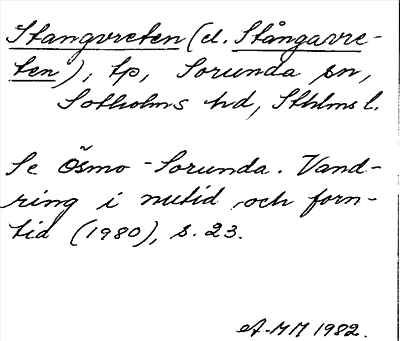 Stangvreten (el. Stångavre-
ten), tp, Sorunda sn,
Sotholms hd, Sthlms l.
Se Ösmo - Sorunda. Vand-
ring i nutid och forn-
tid (1980), s. 23.
A-MM 1982.